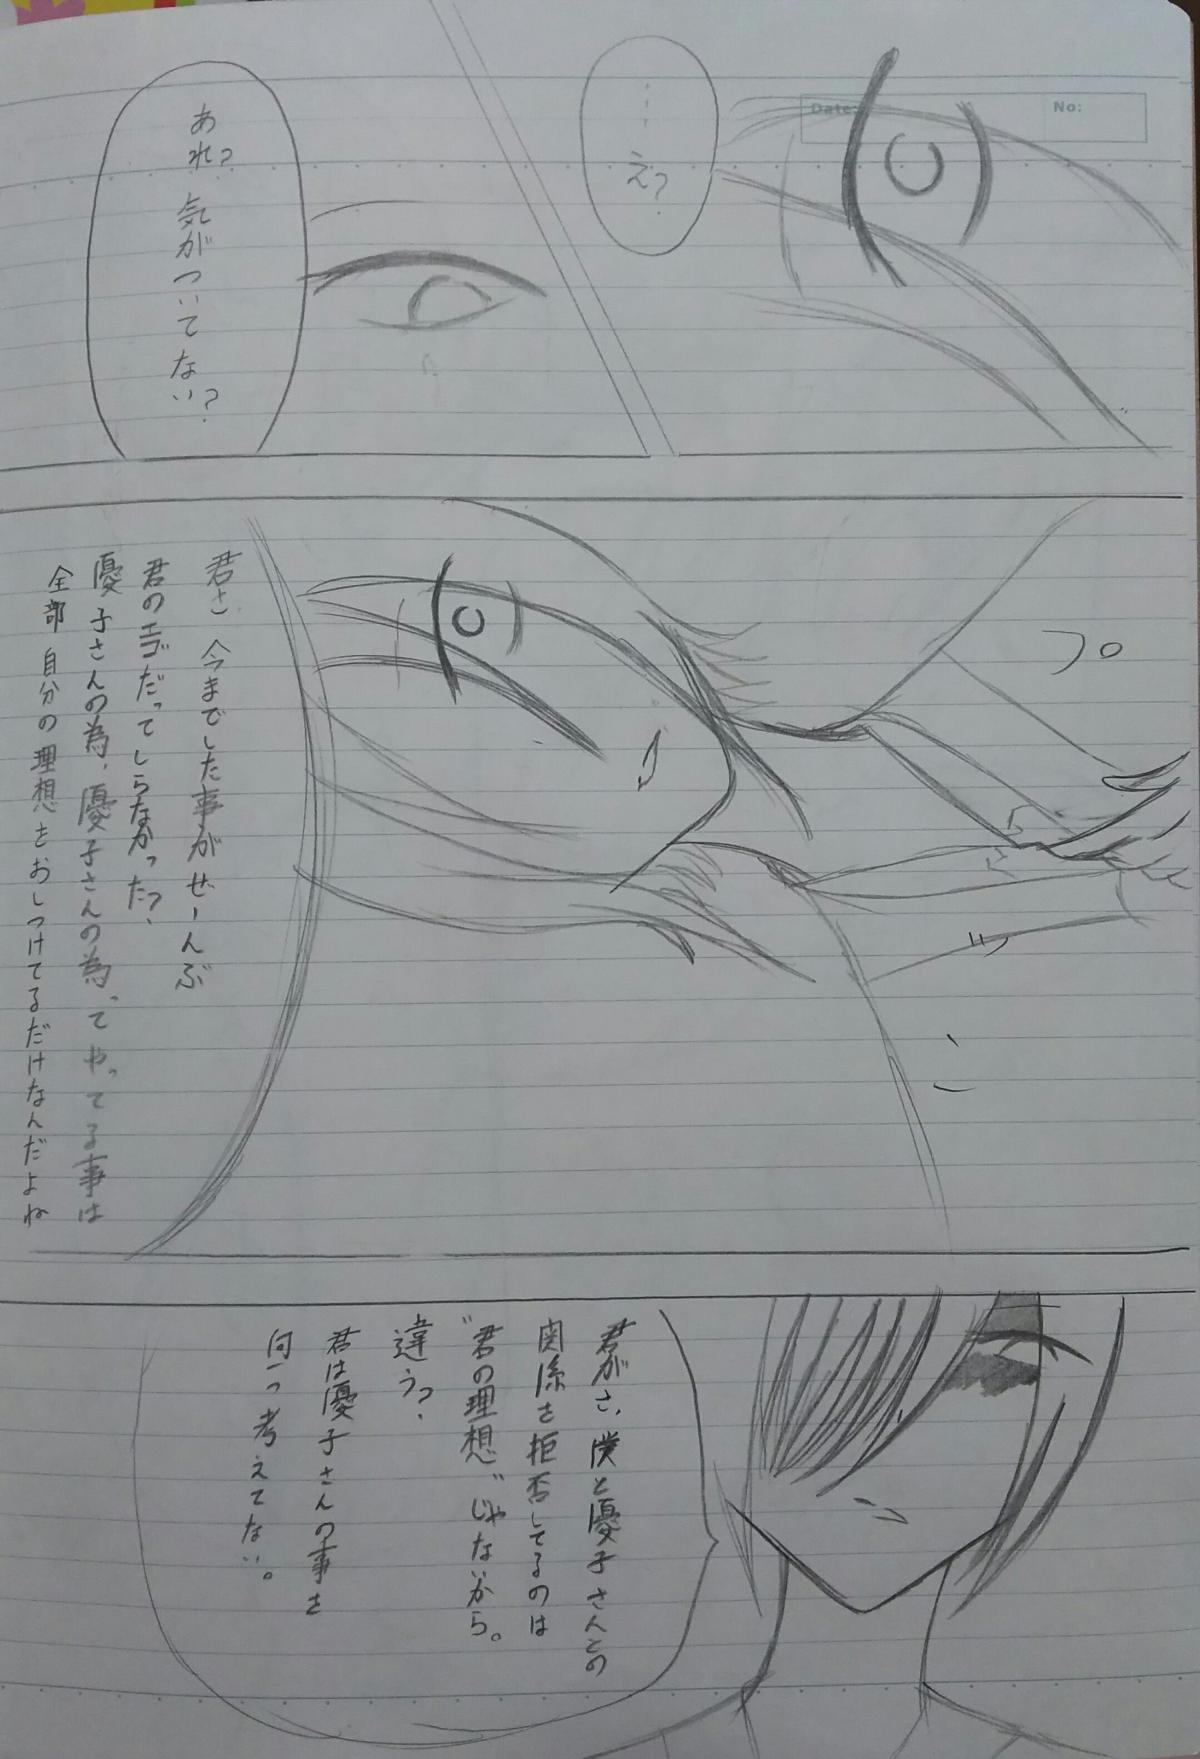 Date:
No:
……え?
あれ?
気がついてない?
プ
ッ
君さ 今までした事がぜーんぶ
君のエゴだってしらなかった?
優子さんの為、優子さんの為ってやってる事は
全部 自分の理想をおしつけてるだけなんだよね
君がさ、僕と優子さんとの
関係を拒否してるのは
"君の理想"じゃないから。
違う?
君は優子さんの事を
何一つ考えてない。